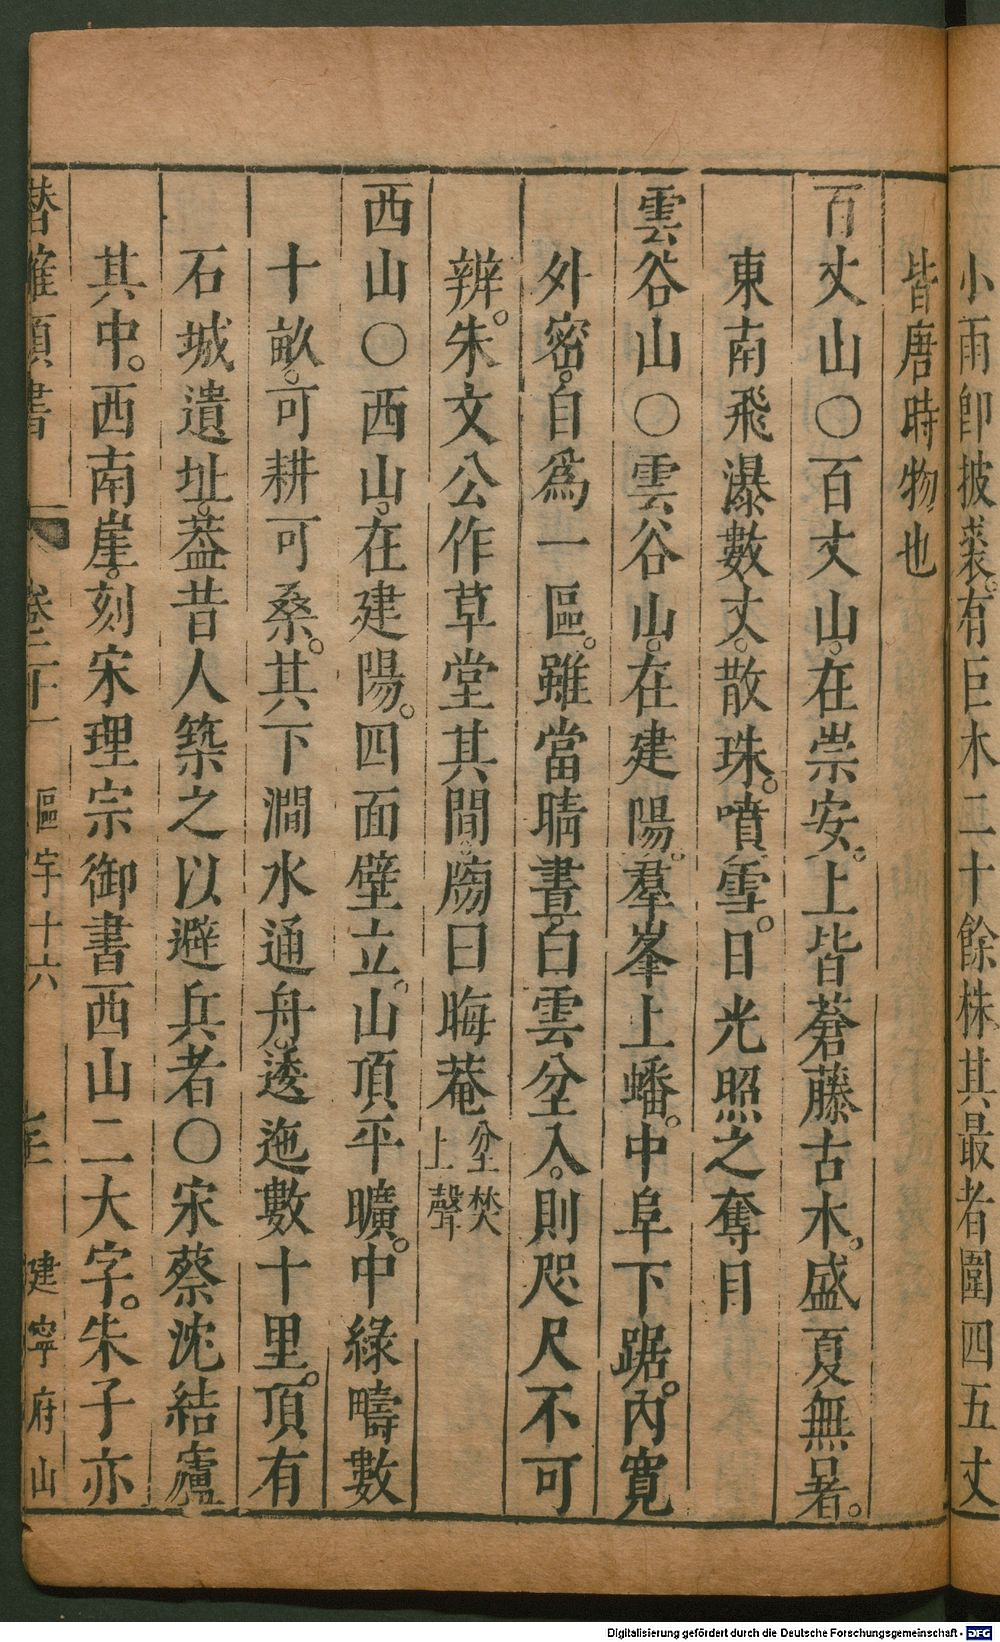 小雨卽披裘。有巨木二十餘株其最者圍四五丈
皆唐時物也
百丈山○百丈山。在崇安。上皆蒼藤古木。盛夏無暑。
東南飛瀑數丈。散珠。噴雪。日光照之奪目
雲谷山○雲谷山。在建陽。羣峯上蟠。中阜下踞。內寛
外密。自爲一區。雖當晴晝。白雲坌入。則咫尺不可
辨。朱文公作草堂其間。牓曰晦菴坌焚上聲
西山○西山。在建陽。四面壁立。山頂平曠。中綠疇數
十畝。可耕可桑。其下澗水通舟。逶迤數十里。頂有
石城遺址。葢昔人築之以避兵者○宋蔡沈結廬
其中。西南崖。刻宋理宗御書西山二大字。朱子亦
潛確類書 卷二十一 區宇十六 建寧府山
Digitalisierung gefördert durch die Deutsche Forschungsgemeinschaft - DFG